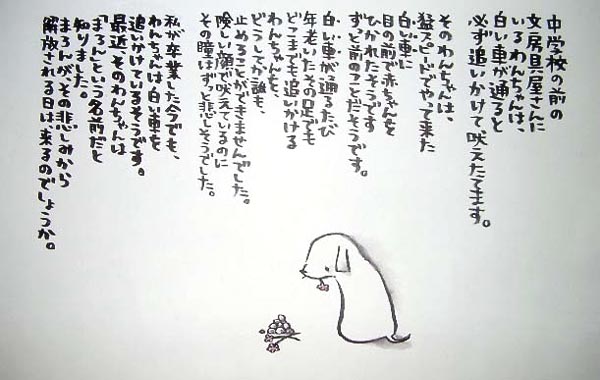 中学校の前の
文房具屋さんに
いるわんちゃんは、
白い車が通ると
必ず追いかけて吠えたてます。
そのわんちゃんは、
猛スピードでやって来た
白い車に
目の前で赤ちゃんを
ひかれたそうです
ずっと前のことだそうです。
白い車が通るたび
年老いたその足でも
どこまでも追いかける
わんちゃんを、
どうしてか誰も、
止めることができませんでした。
険しい顔で吠えているのに
その瞳はずっと悲しそうでした。
私が卒業した今でも、
わんちゃんは白い車を
追いかけているそうです。
最近、そのわんちゃんは
「まろん」という名前だと
知りました。
まろんが、その悲しみから
解放される日は、来るのでしょうか。